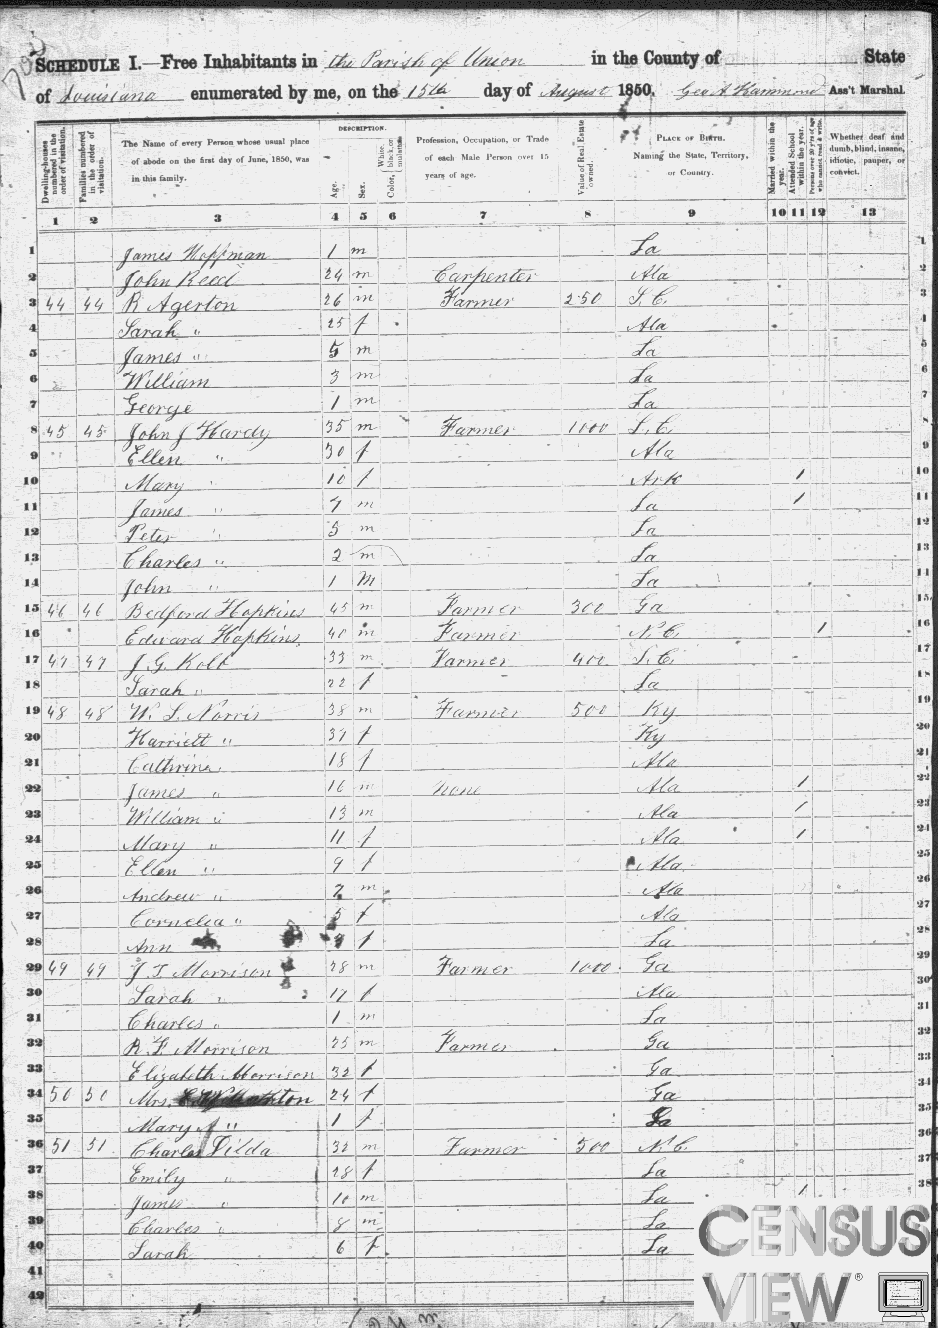 SCHEDULE I.—Free Inhabitants in the Parish of Union in the County of State
of Louisiana enumerated by me, on the 15th day of August 1850. Geo A Hammond Ass't Marshal.
Dwelling-houses numbered in the order of visitation.
Families numbered in the order of visitation.
The Name of every Person whose usual place of abode on the first day of June, 1850, was in this family.
DESCRIPTION.
Age.
Sex.
Color, White, black, or mulatto.
Profession, Occupation, or Trade of each Male Person over 15 years of age.
Value of Real Estate owned.
PLACE OF BIRTH. Naming the State, Territory, or Country.
Married within the year.
Attended School within the year.
Persons over 20 y'rs of age who cannot read & write.
Whether deaf and dumb, blind, insane, idiotic, pauper, or convict.
1 2 3 4 5 6 7 8 9 10 11 12 13
1 James Hoffman 1 m La 1
2 John Reed 24 m Carpenter Ala 2
3 44 44 R Agerton 26 m Farmer 250 S.C. 3
4 Sarah " 25 f Ala 4
5 James " 5 m La 5
6 William 3 m La 6
7 George 1 m La 7
8 45 45 John J Hardy 35 m Farmer 1000 S.C. 8
9 Ellen " 30 f Ala 9
10 Mary " 10 f Ark 1 10
11 James " 7 m La 1 11
12 Peter " 5 m La 12
13 Charles " 2 m La 13
14 John " 1 m La 14
15 46 46 Bedford Hopkins 45 m Farmer 300 Ga 15
16 Edward Hopkins 40 m Farmer N.C. 1 16
17 47 47 J.G. Kolb 33 m Farmer 400 S.C. 17
18 Sarah " 22 f La 18
19 48 48 W. L. Norris 38 m Farmer 500 Ky 19
20 Harriett " 37 f Ky 20
21 Cathrine 18 f Ala 21
22 James " 16 m None Ala 1 22
23 William " 13 m Ala 1 23
24 Mary " 11 f Ala 1 24
25 Ellen " 9 f Ala 25
26 Andrew " 7 m Ala 26
27 Cornelia " 5 f Ala 27
28 Ann f La 28
29 49 49 J T Morrison 28 m Farmer 1000 Ga 29
30 Sarah " 17 f Ala 30
31 Charles " 1 m La 31
32 R. F. Morrison 25 m Farmer Ga 32
33 Elizabeth Morrison 32 f Ga 33
34 50 50 Mrs. 24 f Ga 34
35 Mary A " 1 f La 35
36 51 51 Charles Tilda 32 m Farmer 500 N.C. 36
37 Emily " 28 f La 37
38 James " 10 m La 1 38
39 Charles " 8 m La
40 Sarah 6 f La
41
42
CENSUS
VIEW ®